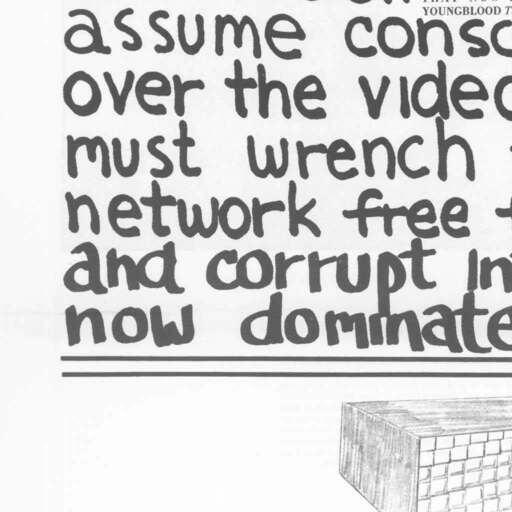 YOUNGBLOOD 7
assume conso
over the video
must wrench
network free
and corrupt in
now dominate